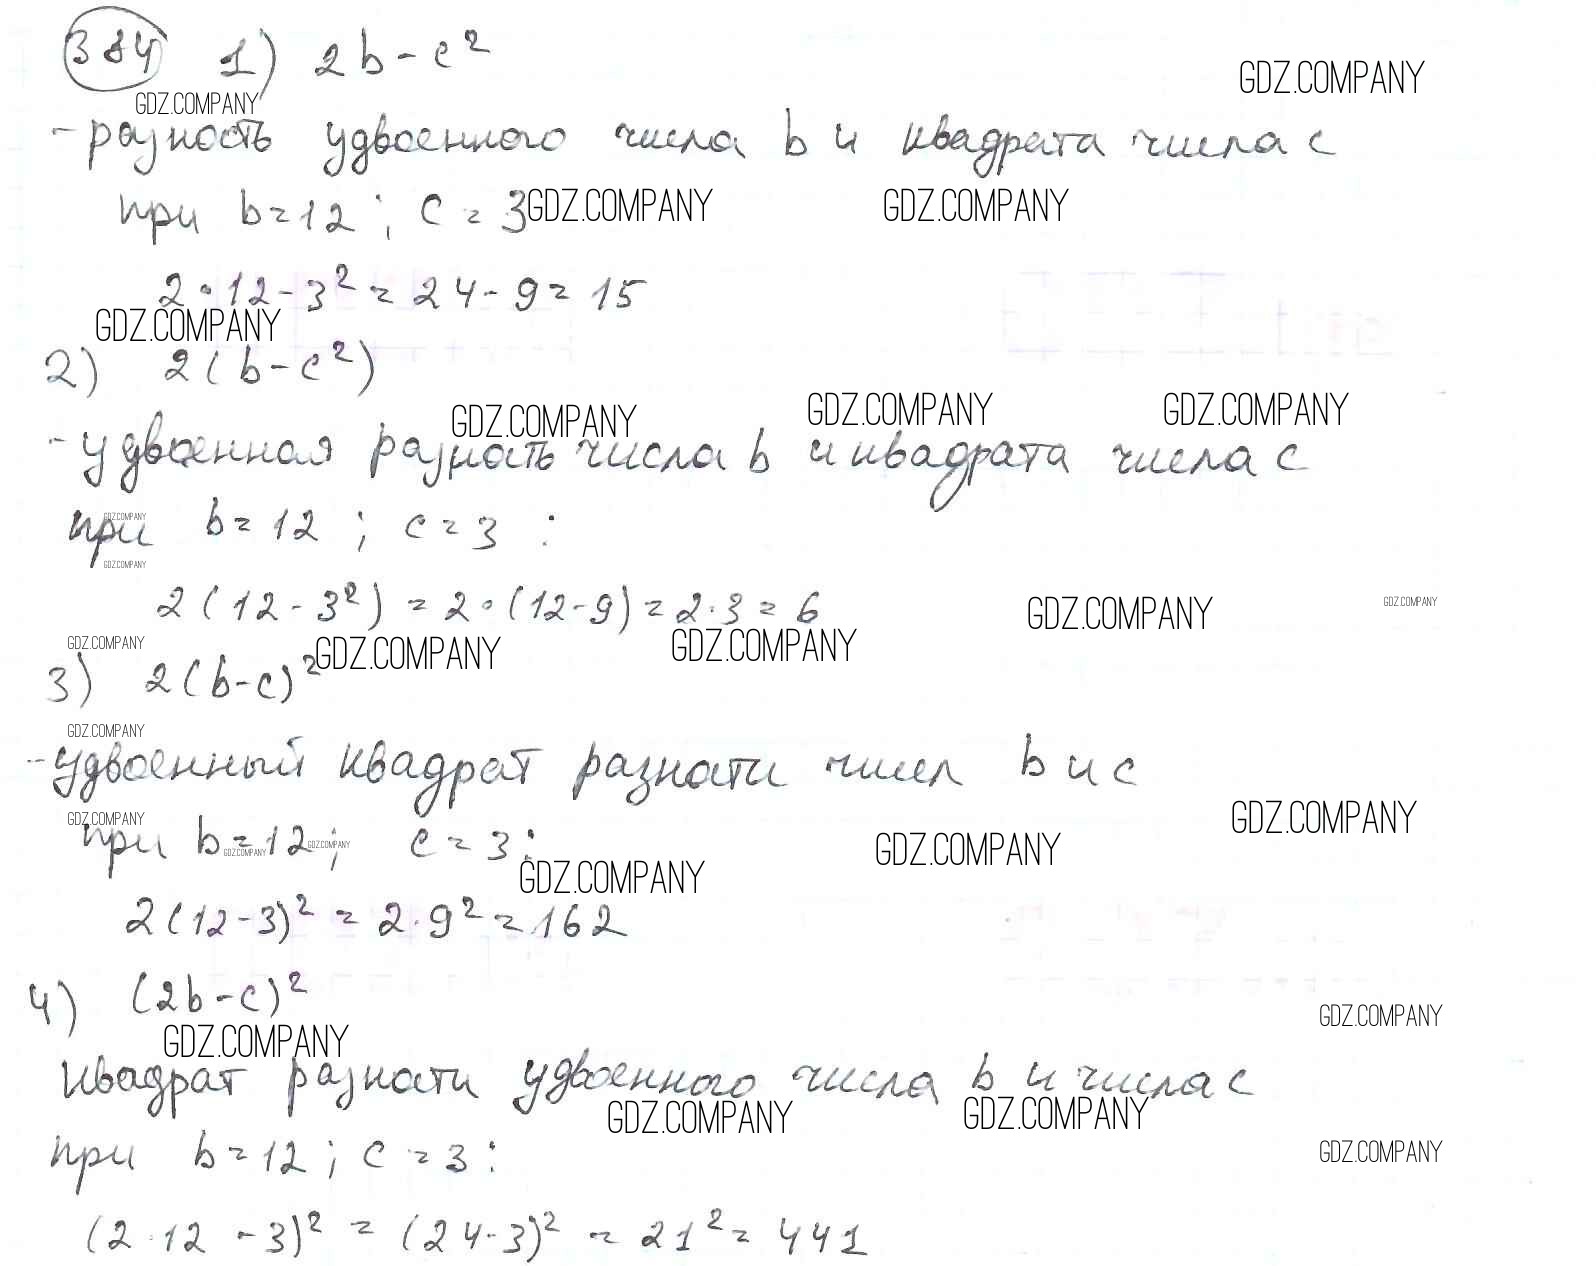 384 1) 2b - c²
GDZ.COMPANY
GDZ.COMPANY
- разность удвоенного числа b и квадрата числа c
при b = 12 ; c = 3
GDZ.COMPANY GDZ.COMPANY
2 · 12 - 3² = 24 - 9 = 15
GDZ.COMPANY
2) 2(b - c²)
GDZ.COMPANY GDZ.COMPANY GDZ.COMPANY
- удвоенная разность числа b и квадрата числа c
GDZ.COMPANY
при b = 12 ; c = 3 :
GDZ.COMPANY
2(12 - 3²) = 2 · (12 - 9) = 2 · 3 = 6
GDZ.COMPANY GDZ.COMPANY
GDZ.COMPANY GDZ.COMPANY GDZ.COMPANY
3) 2(b - c)²
GDZ.COMPANY
- удвоенный квадрат разности чисел b и c
GDZ.COMPANY GDZ.COMPANY
при b = 12 ; c = 3 :
GDZ.COMPANY GDZ.COMPANY GDZ.COMPANY
GDZ.COMPANY
2(12 - 3)² = 2 · 9² = 162
4) (2b - c)²
GDZ.COMPANY
GDZ.COMPANY
Квадрат разности удвоенного числа b и числа c
GDZ.COMPANY GDZ.COMPANY
при b = 12 ; c = 3 :
GDZ.COMPANY
(2 · 12 - 3)² = (24 - 3)² = 21² = 441